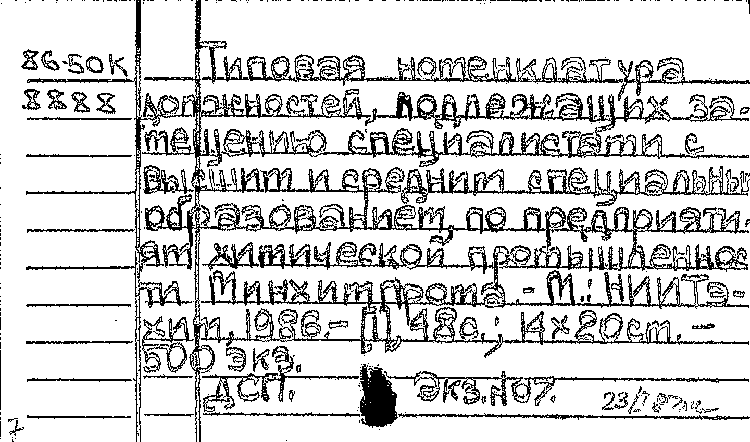 86-50К Типовая номенклатура
8888 должностей, подлежащих за-
мещению специалистами с
высшим и средним специальным
образованием, по предприяти-
ям химической промышленнос
ти Минхимпрома. - М.: НИИТэ-
хим, 1986. - 48с.; 14х20см. -
500 экз.
ДСП. Экз.№07.
7